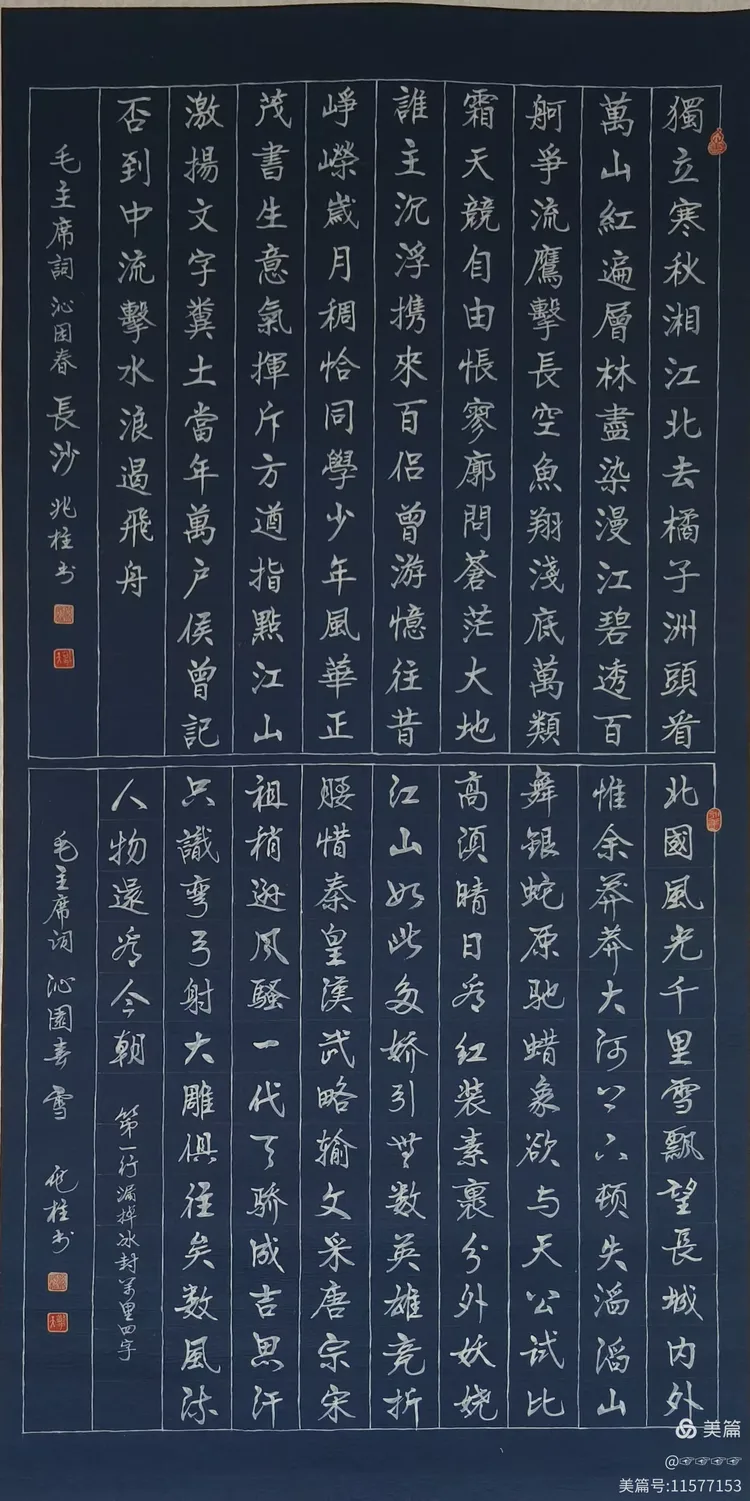 獨立寒秋湘江北去橘子洲頭看
萬山紅遍層林盡染漫江碧透百
舸爭流鷹擊長空魚翔淺底萬類
霜天競自由悵寥廓問蒼茫大地
誰主沉浮携來百侣曾游憶往昔
崢嶸嵗月稠恰同學少年風華正
茂書生意氣揮斥方遒指點江山
激揚文字糞土當年萬户侯曾記
否到中流擊水浪遏飛舟
毛主席詞 沁园春 長沙 兆柱书
北國風光千里雪飄望長城内外
惟余莽莽大河上下顿失滔滔山
舞銀蛇原馳蜡象欲与天公試比
高須晴日看红装素裹分外妖娆
江山如此多娇引無数英雄竞折
腰惜秦皇漢武略输文采唐宗宋
祖稍逊风騷一代天骄成吉思汗
只識彎弓射大雕俱往矣数風流
人物還看今朝
第一行漏掉冰封万里四字
毛主席词 沁園春 雪 兆柱书
美篇
@☞☞☞☞
美篇号:11577153